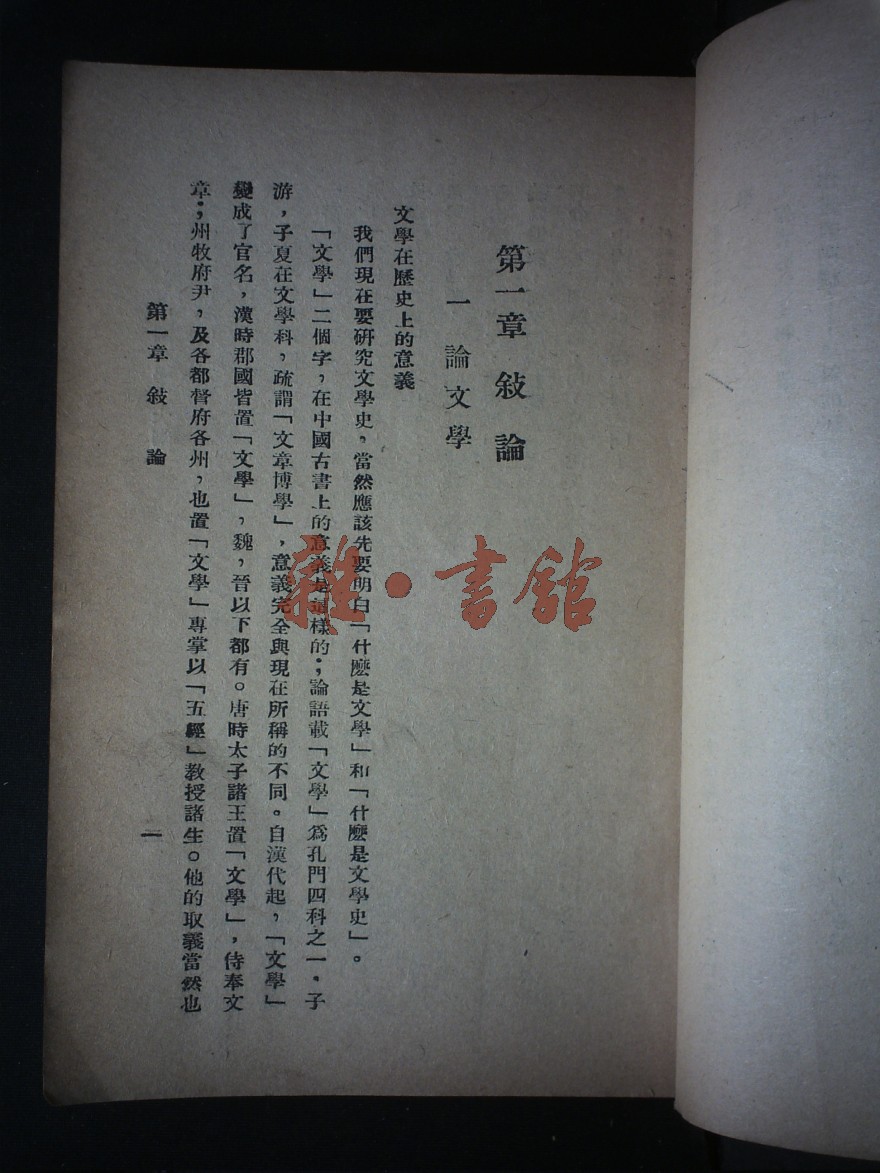 第一章 敍論
一 論文學
文學在歷史上的意義
我們現在要硏究文學史，當然應該先要明白「什麽是文學」和「什麽是文學史」。
「文學」二個字，在中國古書上的意義是這樣的；論語載「文學」爲孔門四科之一．子
游，子夏在文學科，疏謂「文章博學」，意義完全與現在所稱的不同。自漢代起，「文學」
變成了官名，漢時郡國皆置「文學」，魏，晉以下都有。唐時太子諸王置「文學」，侍奉文
章；州牧府尹，及各都督府各州，也置「文學」專掌以「五經」教授諸生。他的取義當然也
第一章 敍 論
一
雜·書館